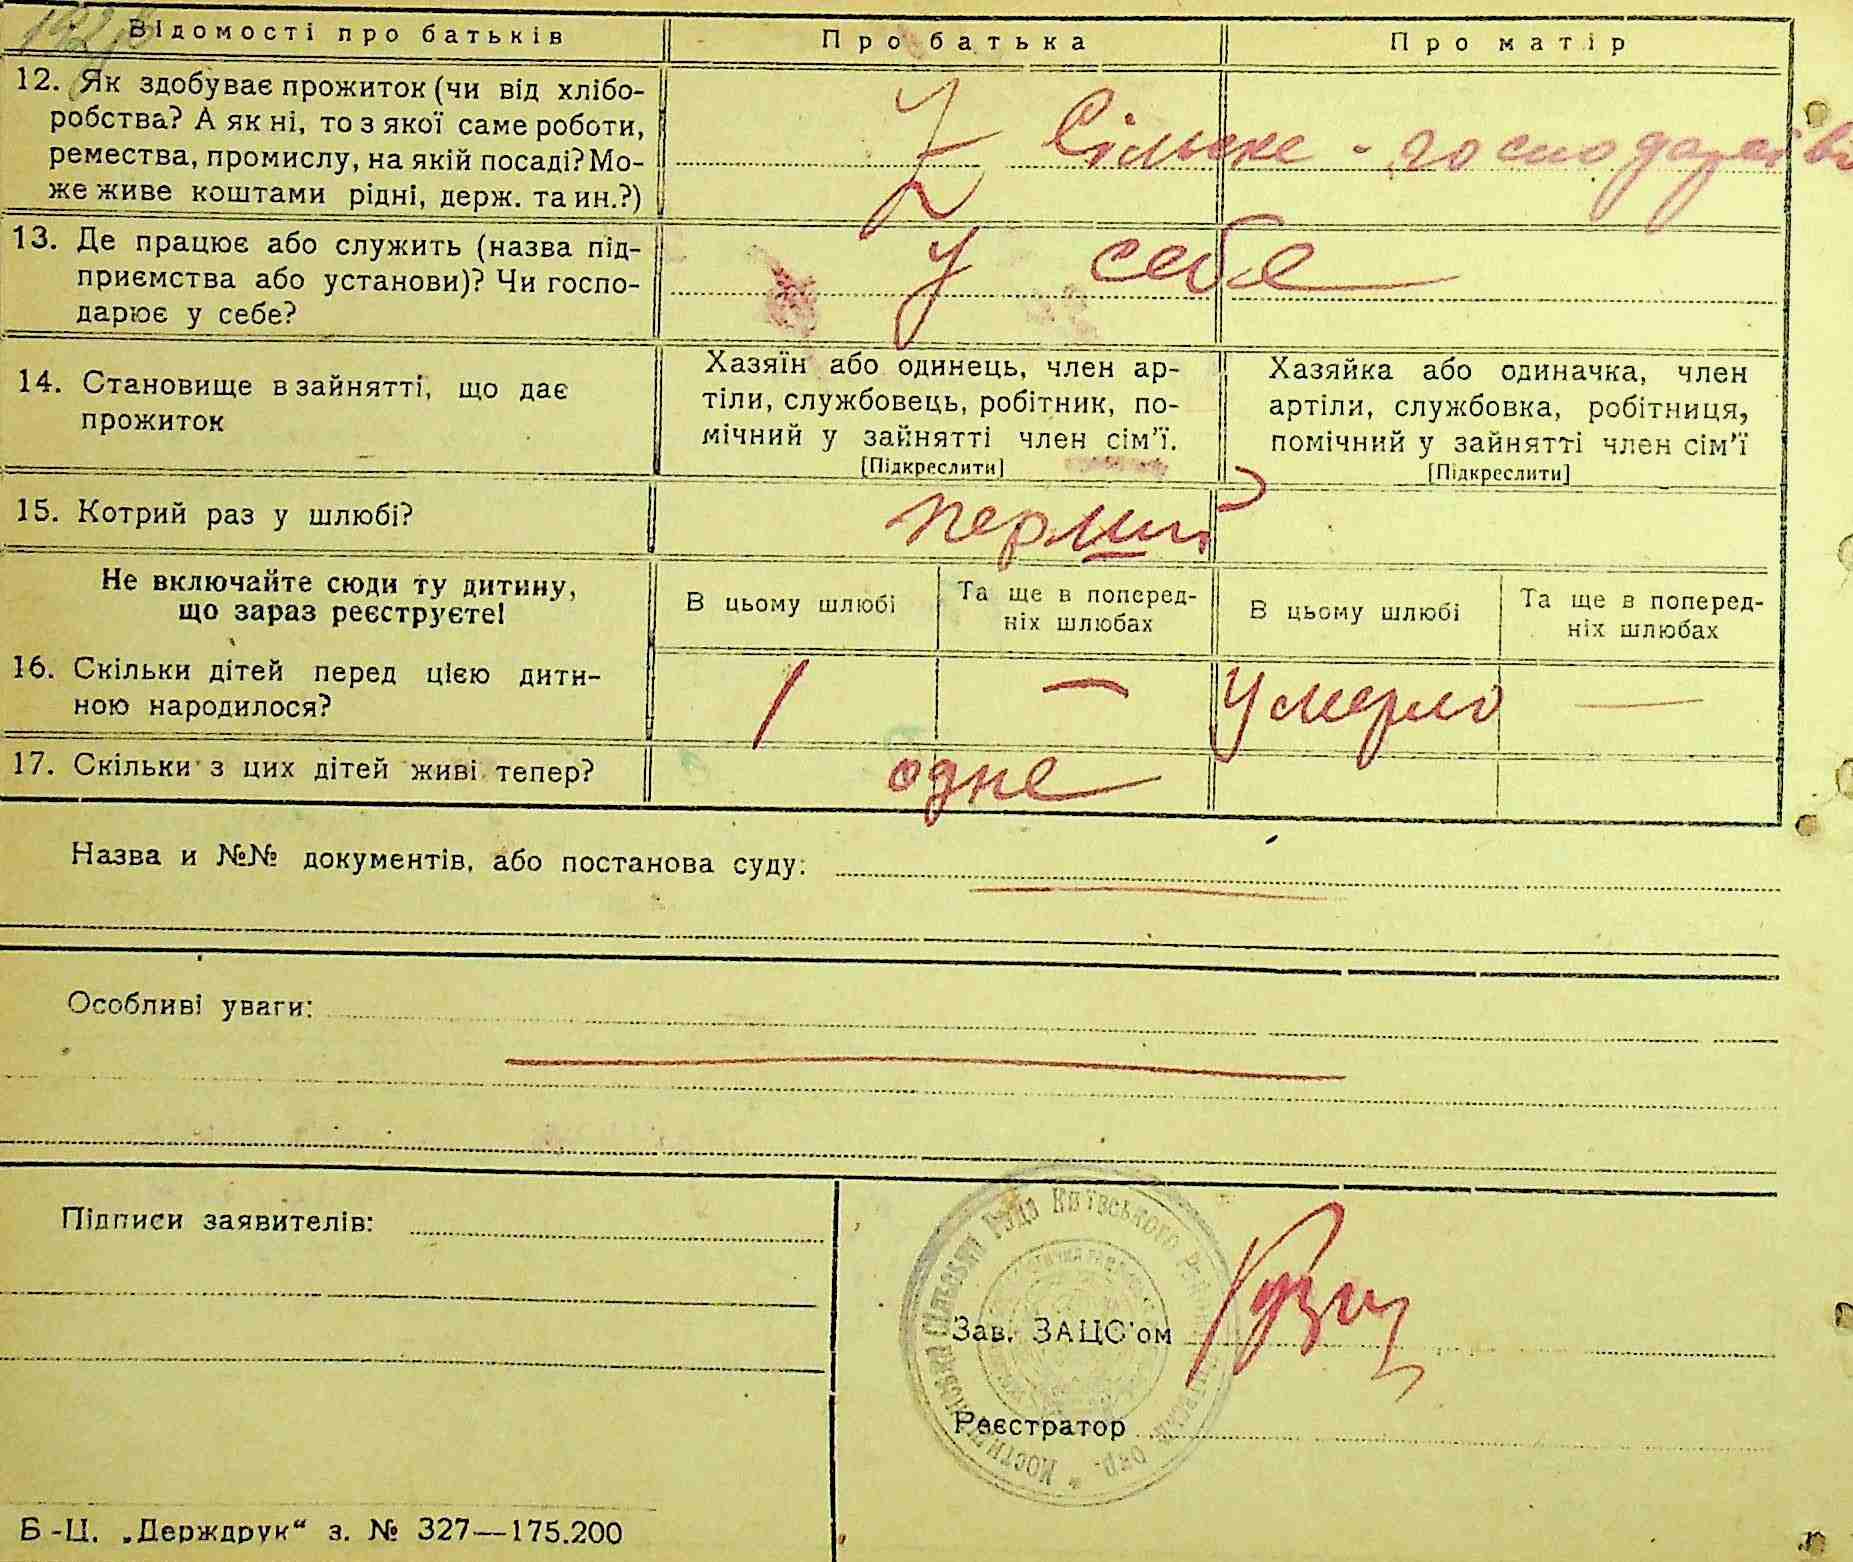 1928
Відомості про батьків Про батька Про матір
12. Як здобуває прожиток (чи від хлібо-
робства? А як ні, то з якої саме роботи,
ремества, промислу, на якій посаді? Мо-
же живе коштами рідні, держ. та ин.?)
З Сільське - господарство
13. Де працює або служить (назва під-
приємства або установи)? Чи госпо-
дарює у себе?
У себе
14. Становище в зайнятті, що дає
прожиток
Хазяїн або одинець, член ар-
тіли, службовець, робітник, по-
мічний у зайнятті член сім'ї.
[Підкреслити]
Хазяйка або одиначка, член
артіли, службовка, робітниця,
помічний у зайнятті член сім'ї
[Підкреслити]
15. Котрий раз у шлюбі? перший
Не включайте сюди ту дитину,
що зараз реєструєте!
В цьому шлюбі
Та ще в поперед-
ніх шлюбах
В цьому шлюбі
Та ще в поперед-
ніх шлюбах
16. Скільки дітей перед цією дити-
ною народилося?
1 — умерло —
17. Скільки з цих дітей живі тепер? одне
Назва и №№ документів, або постанова суду:
Особливі уваги:
Підписи заявителів:
Сільська Рада Київського
Зав. ЗАЦС'ом
Реєстратор
Б-Ц. „Держдрук“ з. № 327—175.200